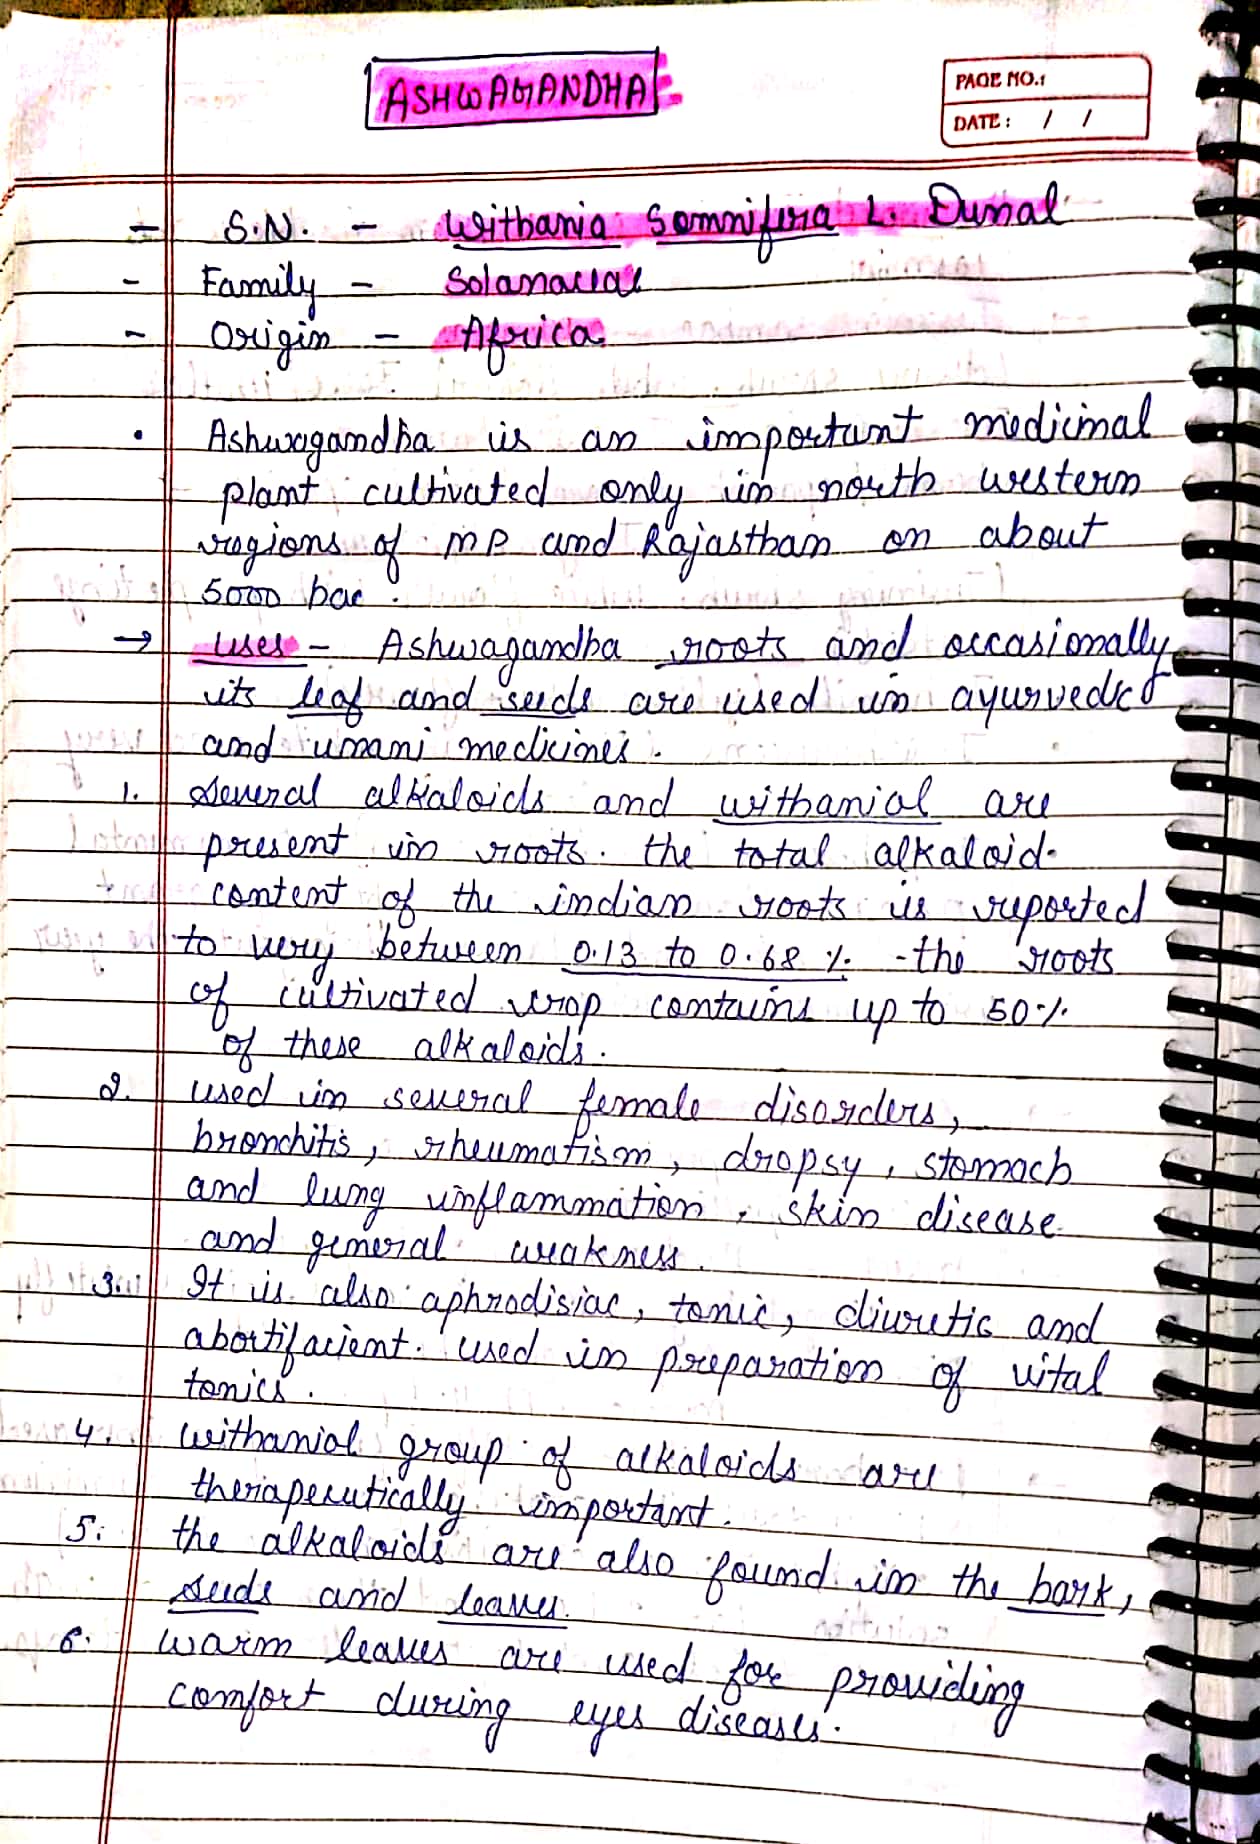 ASHWAGANDHA
PAGE NO.:
DATE: / /
- S.N. - Withania Somnifera L. Dunal
- Family - Solanaceae
- Origin - Africa
• Ashwagandha is an important medicinal
plant cultivated only in north western
regions of MP and Rajasthan on about
5000 hac.
→ uses - Ashwagandha roots and occasionally
its leaf and seeds are used in ayurvedic
and unani medicines.
1. Several alkaloids and withaniol are
present in roots. the total alkaloid
content of the indian roots is reported
to very between 0.13 to 0.68 %. the roots
of cultivated crop contains up to 50%
of these alkaloids.
2. used in several female disorders,
bronchitis, rheumatism, dropsy, stomach
and lung inflammation, skin disease
and general weakness.
3. It is also aphrodisiac, tonic, diuretic and
abortifacient. used in preparation of vital
tonics.
4. withaniol group of alkaloids are
therapecutically important.
5. the alkaloids are also found in the bark,
seeds and leaves.
6. warm leaves are used for providing
comfort during eyes diseases.